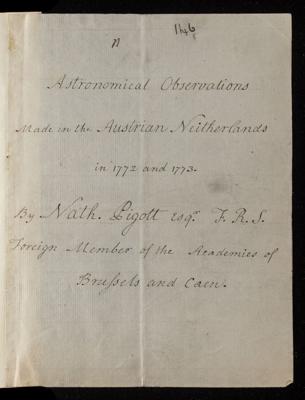 146
n
Astronomical Observations
Made in the Austrian Neitherlands
in 1772 and 1773.
By Nath. Pigott esqr. F. R. S.
Foreign Member of the Academies of
Brussels and Caen.